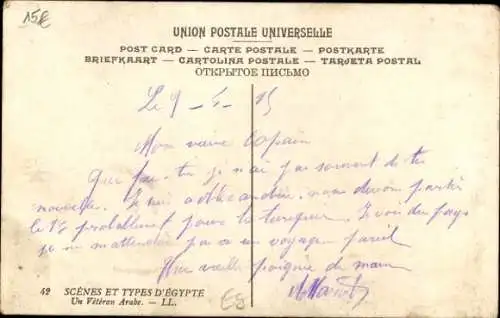 15€
UNION POSTALE UNIVERSELLE
POST CARD — CARTE POSTALE — POSTKARTE
BRIEFKAART — CARTOLINA POSTALE — TARJETA POSTAL
ОТКРЫТОЕ ПИСЬМО
Le 9 - 5 - 15
Mon vieux Copain
Que fais-tu je n'ai pas souvent de tes
nouvelles. Je suis a Alexandrie, nous devons partir
le probablement pour la turquie. Je vois du pays
je ne m'attendais pas a un voyage pareil
Une vieille poignée de main
42 SCÈNES ET TYPES D'ÉGYPTE
Un Vétéran Arabe. — LL.